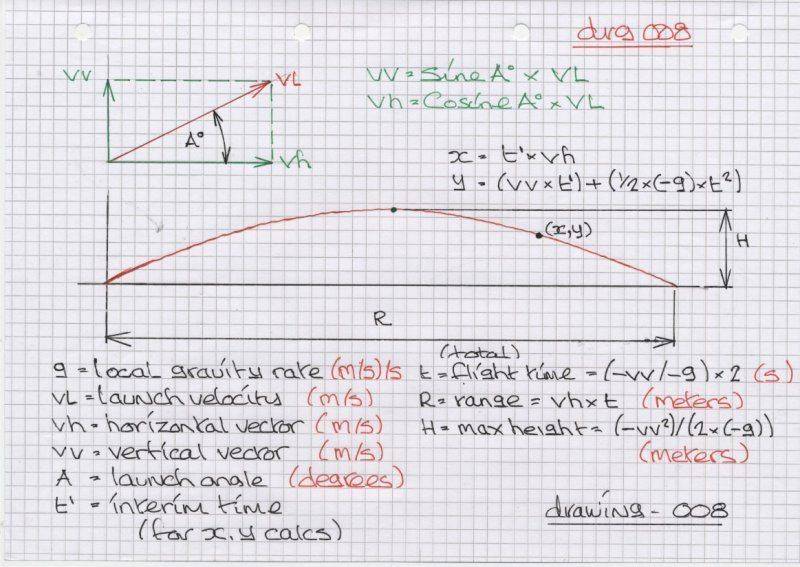 durg 008
Vv
VL
A°
Vh
Vv = Sine A° × VL
Vh = Cosine A° × VL
x = t' × Vh
y = (Vv × t') + (1/2 × (-g) × t²)
(x,y)
H
R
g = local gravity rate (m/s)/s
VL = launch velocity (m/s)
Vh = horizontal vector (m/s)
Vv = vertical vector (m/s)
A = launch angle (degrees)
t' = interim time
(for x.y calcs)
(total)
t = flight time = (-vv/-g) × 2 (s)
R = range = vh × t (meters)
H = max height = (-vv²)/(2×(-g))
(meters)
drawing - 008